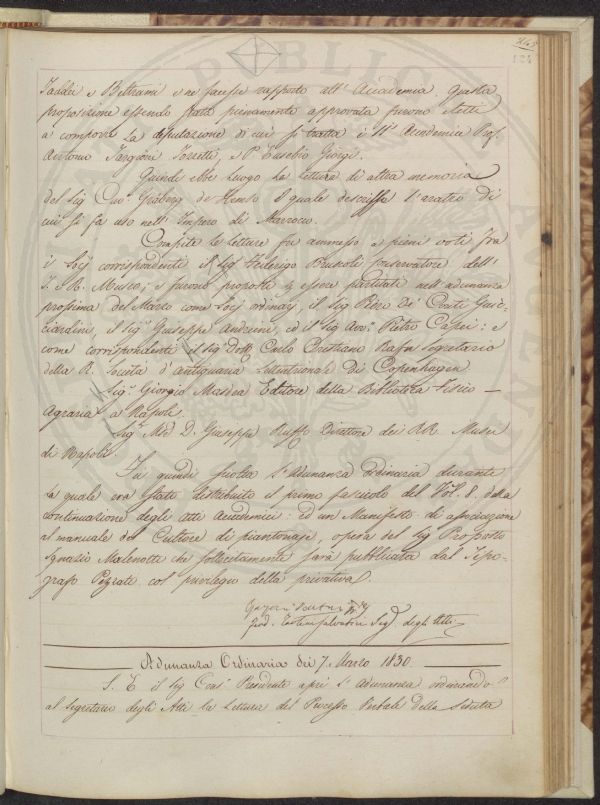 Taddei e Beltrami e ne facesse rapporto all' Accademia. Questa
proposizione essendo stata pienamente approvata furono eletti
a comporre la deputazione di cui si tratta i SS.i Accademici Prof.
Antonio Targioni Tozzetti, e P. Eusebio Giorgi.
Quindi ebbe luogo la lettura di altra memoria
del Sig. Cav. Gräberg de Hemsö il quale descrisse l'aratro di
cui si fa uso nell' Impero di Marrocco.
Compite le letture fu ammesso a pieni voti fra
i Socj corrispondenti il Sig. Federigo Bruscoli conservatore dell'
I. e R. Museo; e furono proposti per essere partitati nell' adunanza
prossima del Marzo come Socj ordinarj, il Sig. Piero de' Conti Guic-
ciardini, il Sig. Giuseppe Andreini, ed il Sig. Avv. Pietro Capei: e
come corrispondenti il Sig. Dott. Carlo Cristiano Rafn Segretario
della R. Società d'antiquaria Settentrionale di Copenhagen
Sig. Giorgio Masdea Editore della Biblioteca Fisico –
Agraria a Napoli.
Sig. D. Giuseppe Ruffo Direttore dei RR. Musei
di Napoli.
Fu quindi sciolta l'adunanza ordinaria durante
la quale era stato distribuito il primo fascicolo del Vol. 8. della
continuazione degli atti Accademici: ed un Manifesto di associazione
al manuale del Cultore di piantonaje, opera del Sig. Proposto
Ignazio Malenotti che sollecitamente sarà pubblicata dal Tipo-
grafo Pezzati col privilegio della privativa.
Segr. degli Atti
Adunanza Ordinaria dei 7. Marzo 1830.
S. E. il Sig. Cons. Presidente aprì l'adunanza ordinando
al Segretario degli Atti la Lettura del Processo Verbale della Seduta